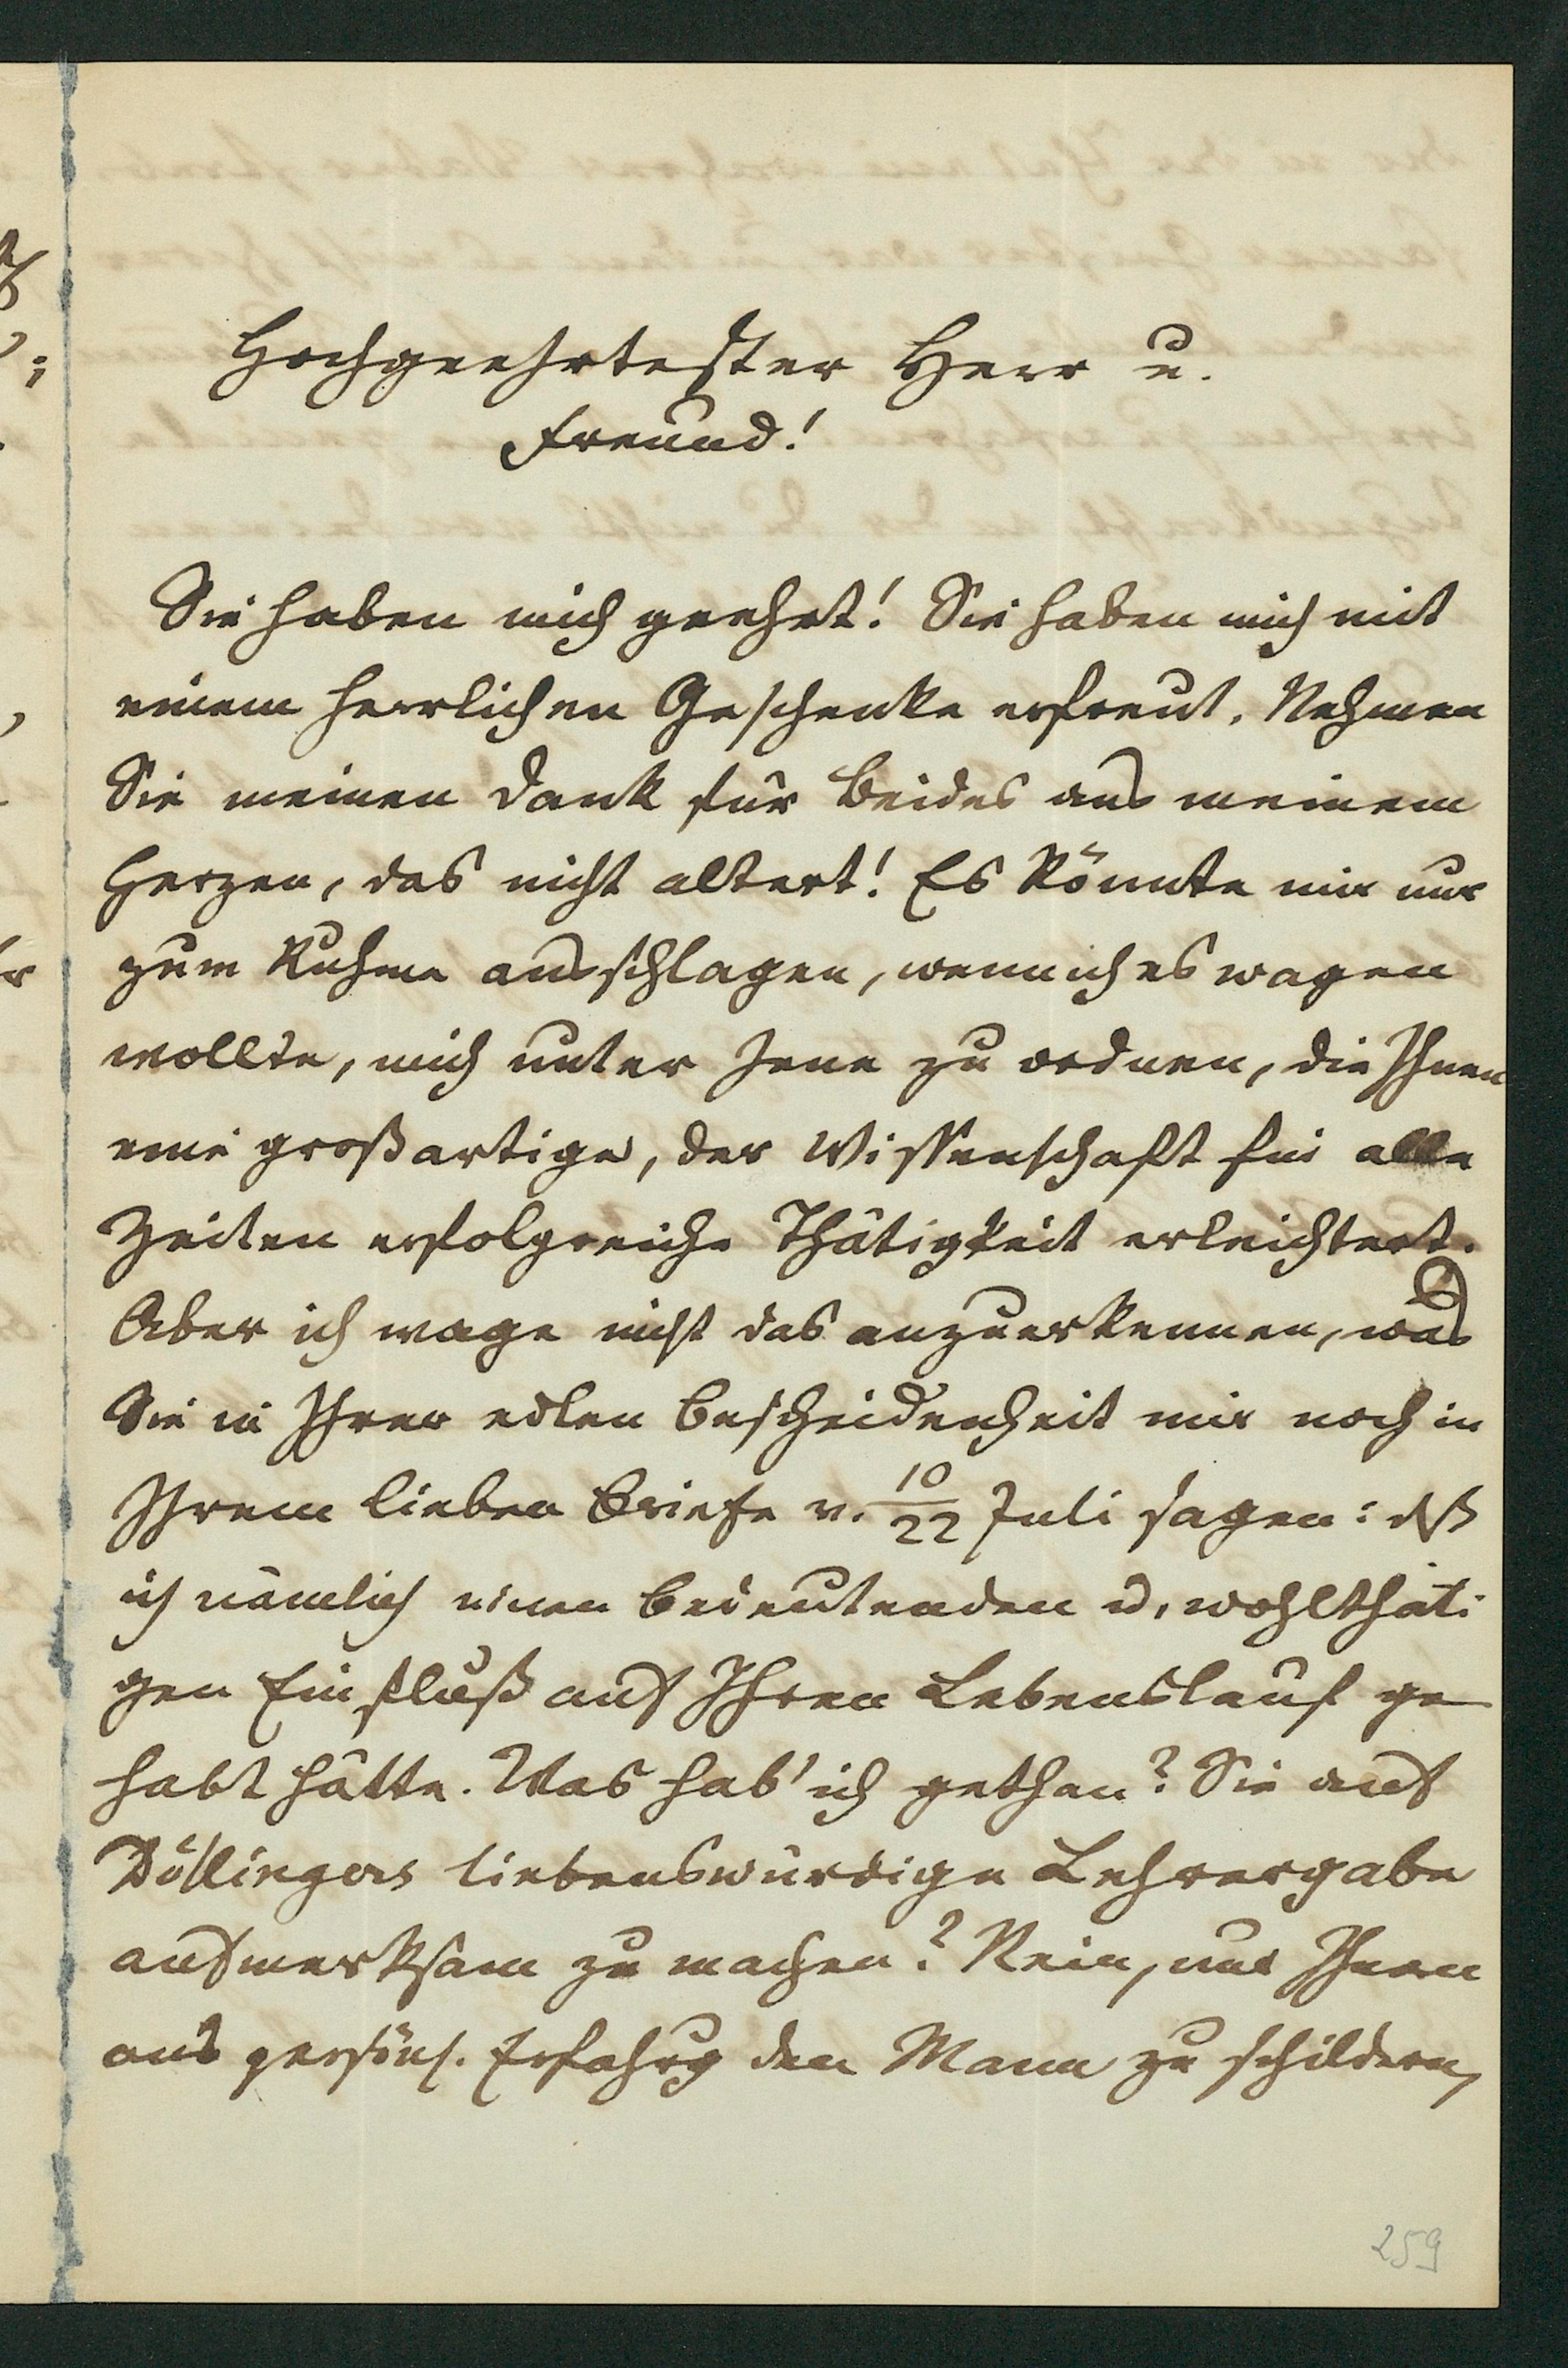 Hochgeehrtester Herr u.
Freund!
Sie haben mich geehrt! Sie haben mich mit
einem herrlichen Geschenke erfreut. Nehmen
Sie meinen Dank für Beides aus meinem
Herzen, das nicht altert! Es könnte mir nur
zum Ruhme ausschlagen, wenn ich es wagen
wollte, mich unter Jene zu ordnen, die Ihnen
eine großartige, der Wissenschaft für alle
Zeiten erfolgreiche Thätigkeit erleichtert.
Aber ich wage nicht das anzuerkennen, was
Sie in Ihrer edlen Bescheidenheit mir noch in
Ihrem lieben Briefe v. 10/22 Juli sagen: dß
ich nämlich einen bedeutenden u. wohlthäti-
gen Einfluß auf Ihren Lebenslauf ge-
habt hätte. Was hab' ich gethan? Sie auf
Döllingers liebenswürdige Lehrergabe
aufmerksam zu machen? Nein, nur Ihnen
aus persönl. Erfahrg den Mann zu schildern,
259